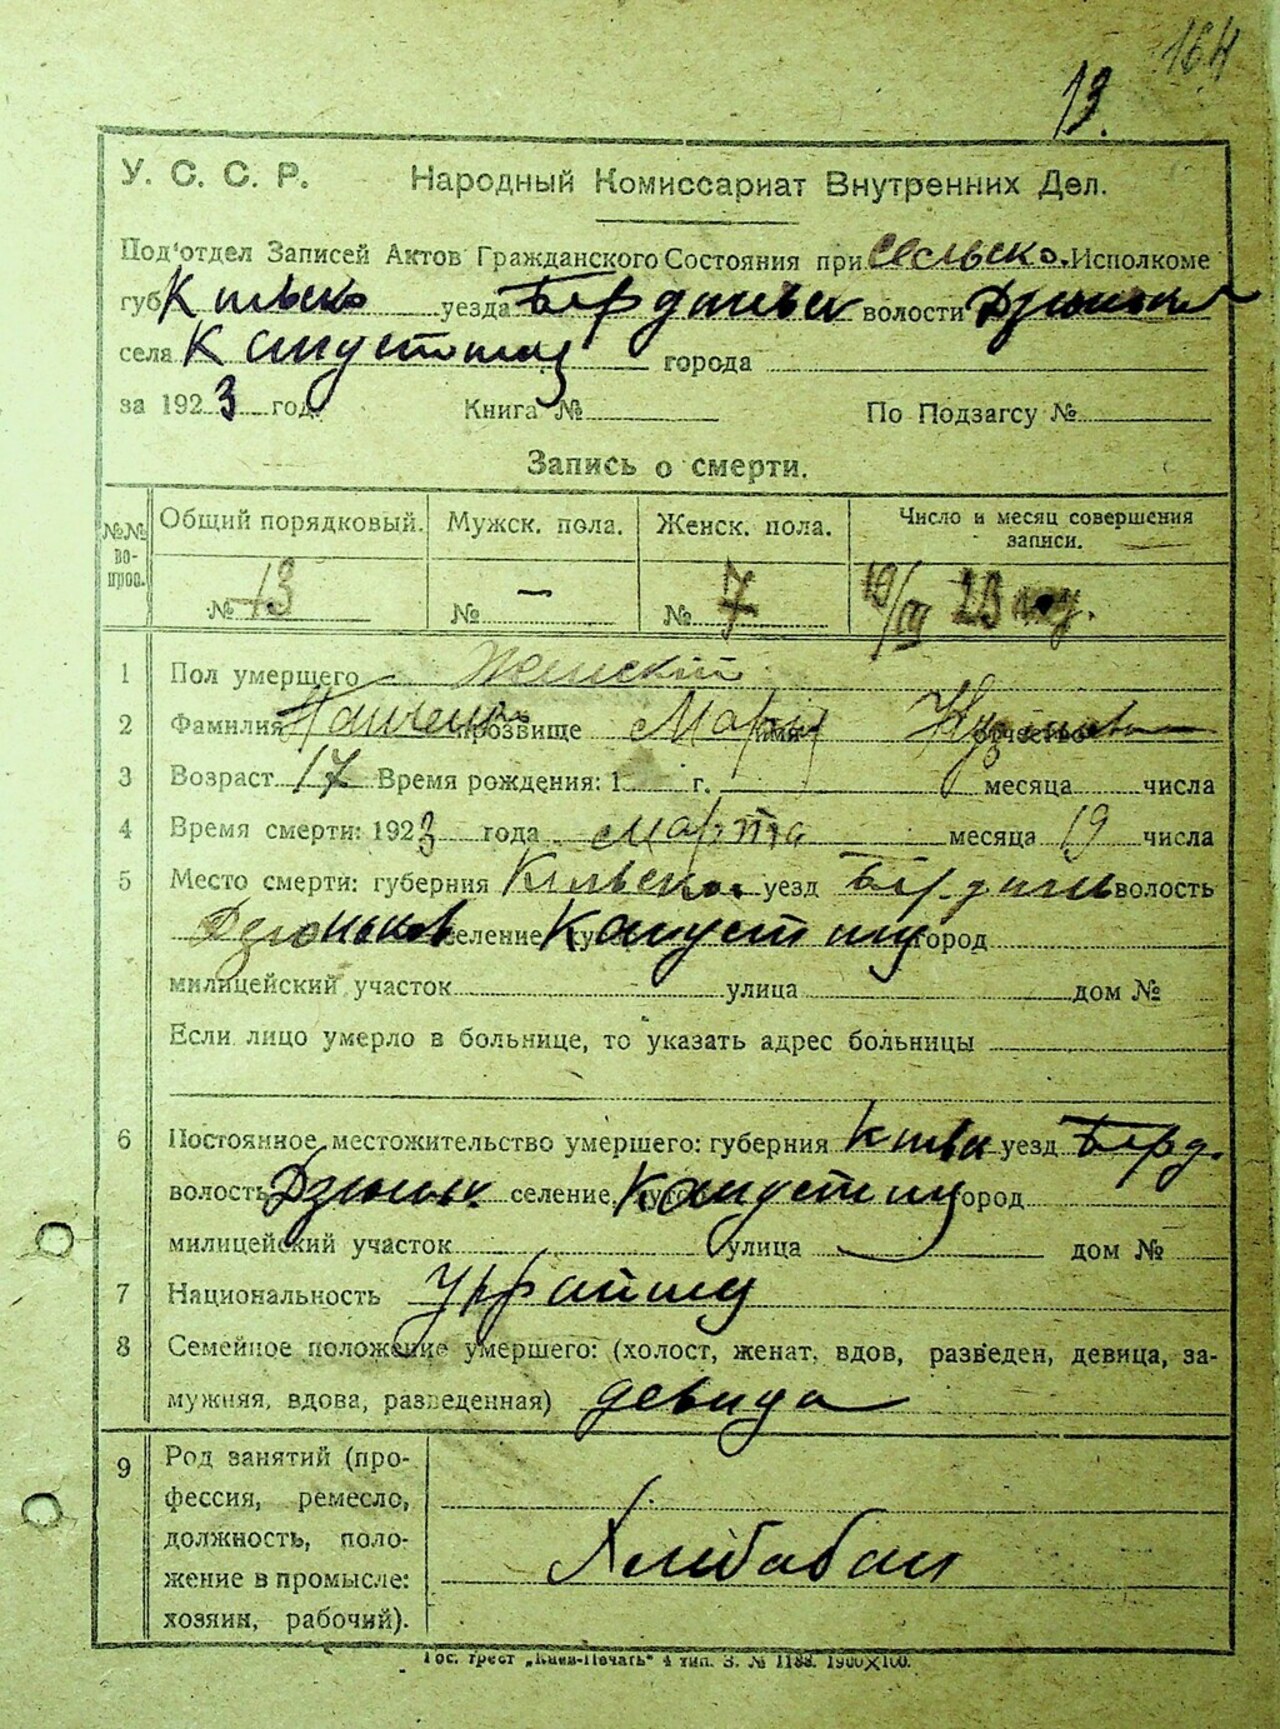 164
13.
У. С. С. Р. Народный Комиссариат Внутренних Дел.
Под'отдел Записей Актов Гражданского Состояния при Сельско. Исполкоме
губ Киивско уезда Бердичевск волости Дзюньк
села Капустинц города
за 1923 год. Книга № По Подзагсу №
Запись о смерти.
№№ вопрос. Общий порядковый. Мужск. пола. Женск. пола. Число и месяц совершения записи.
№ 13 № — № 7 19/III 23
1 Пол умершего Женский
2 Фамилия прозвище Мария имя отчество
3 Возраст 17 Время рождения: 1 г. месяца числа
4 Время смерти: 1923 года марта месяца 19 числа
5 Место смерти: губерния Киівско уезд Бердичів волость
Дзюньков селение Капустинц город
милицейский участок улица дом №
Если лицо умерло в больнице, то указать адрес больницы
6 Постоянное местожительство умершего: губерния Киівск уезд Берд.
волость Дзюньк. селение, Капустинц город
милицейский участок улица дом №
7 Национальность Украинц
8 Семейное положение умершего: (холост, женат, вдов, разведен, девица, за-
мужняя, вдова, разведенная) девица
9 Род занятий (про-
фессия, ремесло,
должность, поло-
жение в промысле:
хозяин, рабочий).
Хлибабан
Гос. трест „Киев-Печать" 4 тип. З. № 1188. 1900×100.